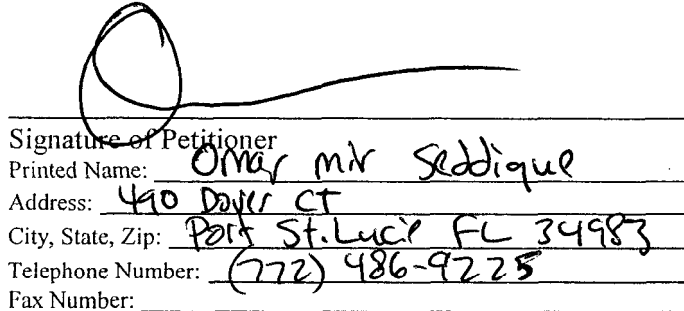 Signature of Petitioner
Printed Name: Omar mir Seddique
Address: 490 Dover CT
City, State, Zip: Port St. Lucie FL 34983
Telephone Number: (772) 486-9225
Fax Number: